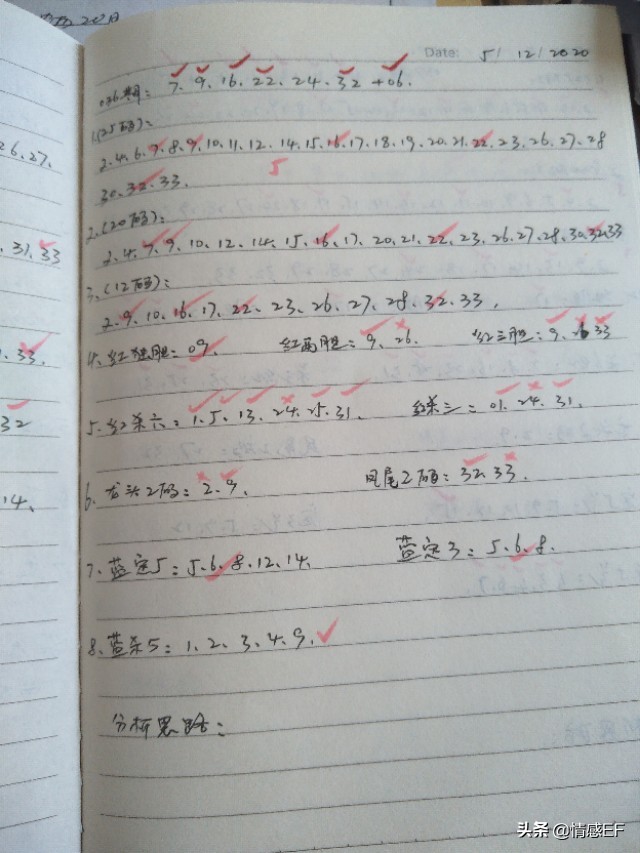 Date: 5/12/2020
036期: 7、9、16、22、24、32+06.
1.(25码):
2.4.6.7.8.9.10.11.12.14.15.16.17.18.19.20.21.22.23.26.27.28
30.32.33.
5
2.(20码):
2.4.7.9.10.12.14.15.16.17.20.21.22.23.26.27.28.30.32.33
3.(12码):
2.9.10.16.17.22.23.26.27.28.32.33.
4、红独胆: 09. 红两胆: 9、26. 红三胆: 9、26 33
5、红杀六: 1.5.13.24.25.31. 红杀三: 01.24.31.
6、龙头2码: 2、9. 凤尾2码: 32 33.
7、蓝定5: 5.6.8.12.14. 蓝定3: 5.6.8.
8、蓝杀5: 1、2、3、4、9.
分析思路:
26.27.
31.33
33.
32
14、
头条 @情感EF